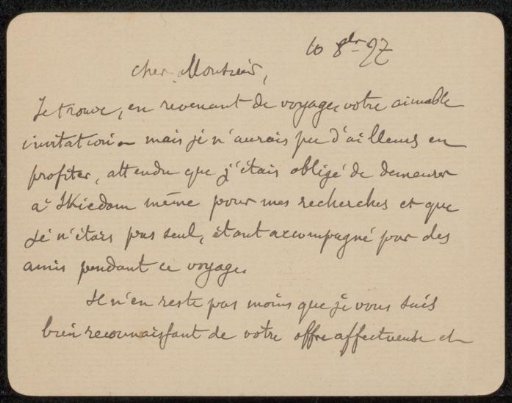 10 8bre 97
cher Monsieur,
Je trouve, en revenant de voyage, votre aimable
invitation – mais je n'aurais pu d'ailleurs en
profiter, attendu que j'étais obligé de demeurer
à Skiedam même pour mes recherches et que
je n'étais pas seul, étant accompagné par des
amis pendant ce voyage.
Il n'en reste pas moins que je vous suis
bien reconnaissant de votre offre affectueuse et